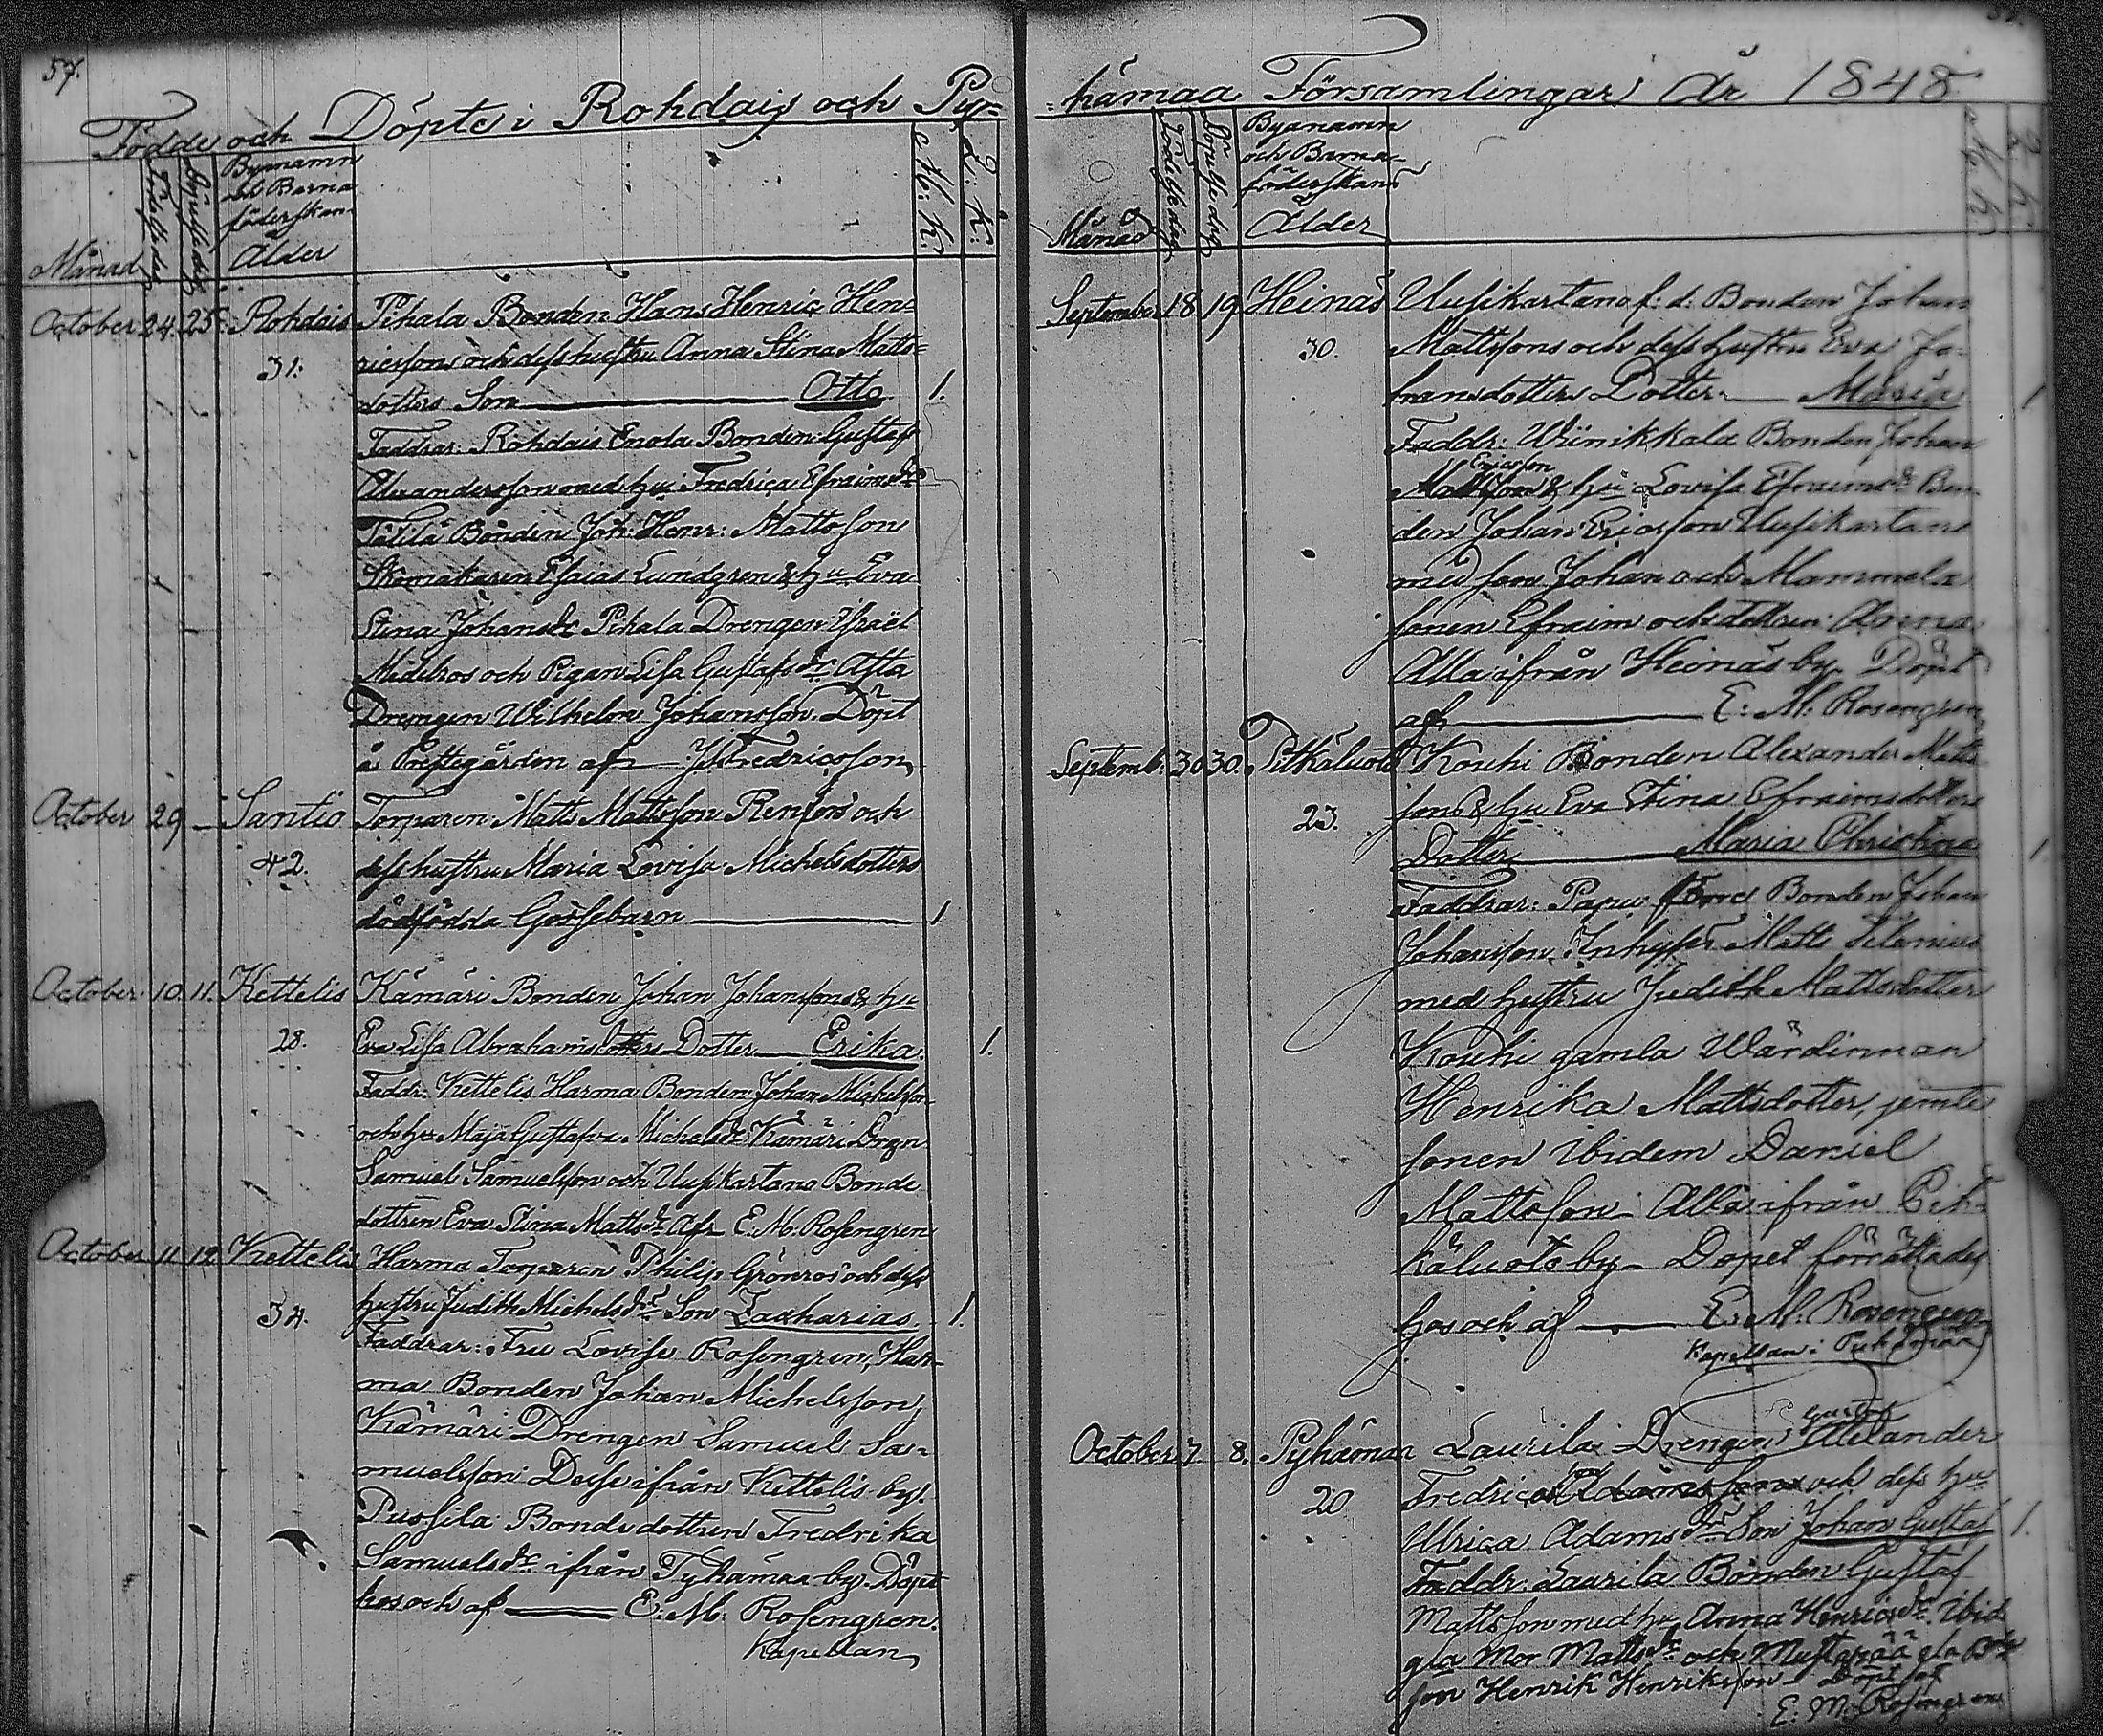 57.
Födde och Döpte i Rohdais och Pyr-
Månad
Födelsedag
Döpelsedag
Bynamn
och Barna
föderskans
Ålder
M. K.
Q. K.
October 24. 25. Rohdais Pihala Bonden Hans Henric Hen-
31. ricssons och dess hustru Anna Stina Matts-
dotters Son Otto 1.
Faddrar: Rohdais Enola Bonden Gustaf
Alexandersson med hu Fredrica Efraimsdr
Tätilä Bonden Joh: Henr: Mattsson
Skomakaren Esaias Lundgren & hu Eva
Stina Johansdr Pihala Drengen Israël
Midelros och Pigan Lisa Gustafsdr
Drengen Wilhelm Johansson. Döpt
å Prestegården af J. Fredricsson
October 29 — Santio Torparen Matts Mattsson Renfors och
42. dess hustru Maria Lovisa Michelsdotters
dödfödda Gossebarn 1
October 10. 11. Kettelis Kämäri Bonden Johan Johanssons & hu
28. Eva Lisa Abrahamsdotters Dotter Erika. 1.
Faddr: Kettelis Harma Bonden Johan Michelsson
och hu Maja Gustafva Michelsdr Kämäri Drgn
Samuel Samuelsson och Uusikartano Bonde
dottren Eva Stina Mattsdr Af E. M. Rosengren
October 11 12 Kettelis Harma Torparen Philip Grönros och dess
34. hustru Judith Michelsdrs Son Zacharias. 1.
Faddrar: Fru Lovisa Rosengren, Har-
ma Bonden Johan Michelsson,
Kämäri Drengen Samuel Sa-
muelsson Desse ifrån Kettelis by.
Pussila Bondedottren Fredrika
Samuelsdr ifrån Pyhämaa by. Döpt
hos och af E. M. Rosengren.
Kapellan
hämaa Församlingar År 1848
Månad
Födelsedag
Döpelsedag
Bynamn
och Barna-
föderskans
Ålder
M. K.
Q. K.
September 18 19 Heinäs Uusikartano f: d: Bonden Johan
30. Mattssons och dess hustru Eva Jo-
hansdotters Dotter. Maria 1
Faddr: Wiinikkala Bonden Johan
Ericsson
Mattsson & hu Lovisa Efraimsdr Bon-
den Johan Ericsson Uusikartano
med son Johan och Mammela
sonen Efraim och dottren Anna
Alla ifrån Heinäs by Döpt
af E: M: Rosengren
Septemb: 30 30. Pitkäluoto Kouhi Bonden Alexander Matts
23. sons & hu Eva Stina Efraimsdotters
Dotter Maria Christina 1
Faddrar: Papu Bonden Johan
Johansson, Inhyses Matts Silenius
med hustru Judith Mattsdotter
Kouhi gamla Wärdinnan
Henrika Mattsdotter, jemte
sonen ibidem Daniel
Mattsson Alla ifrån Pit-
käluoto by Dopet förrättades
hos och af E. M. Rosengren
Kapellan i Pyhämaa
October 7 8. Pyhämaa Laurila Drengen Gustaf Alexander
20 Fredricsson Adamssons och dess hu
Ulrica Adamsdrs Son Johan Gustaf 1.
Faddr: Laurila Bonden Gustaf
Mattsson med hu Anna Henricsdr Ibid
gla Mor Mattsdr och Mustapää gla
son Henrik Henriksson Döpt af
E. M. Rosengren